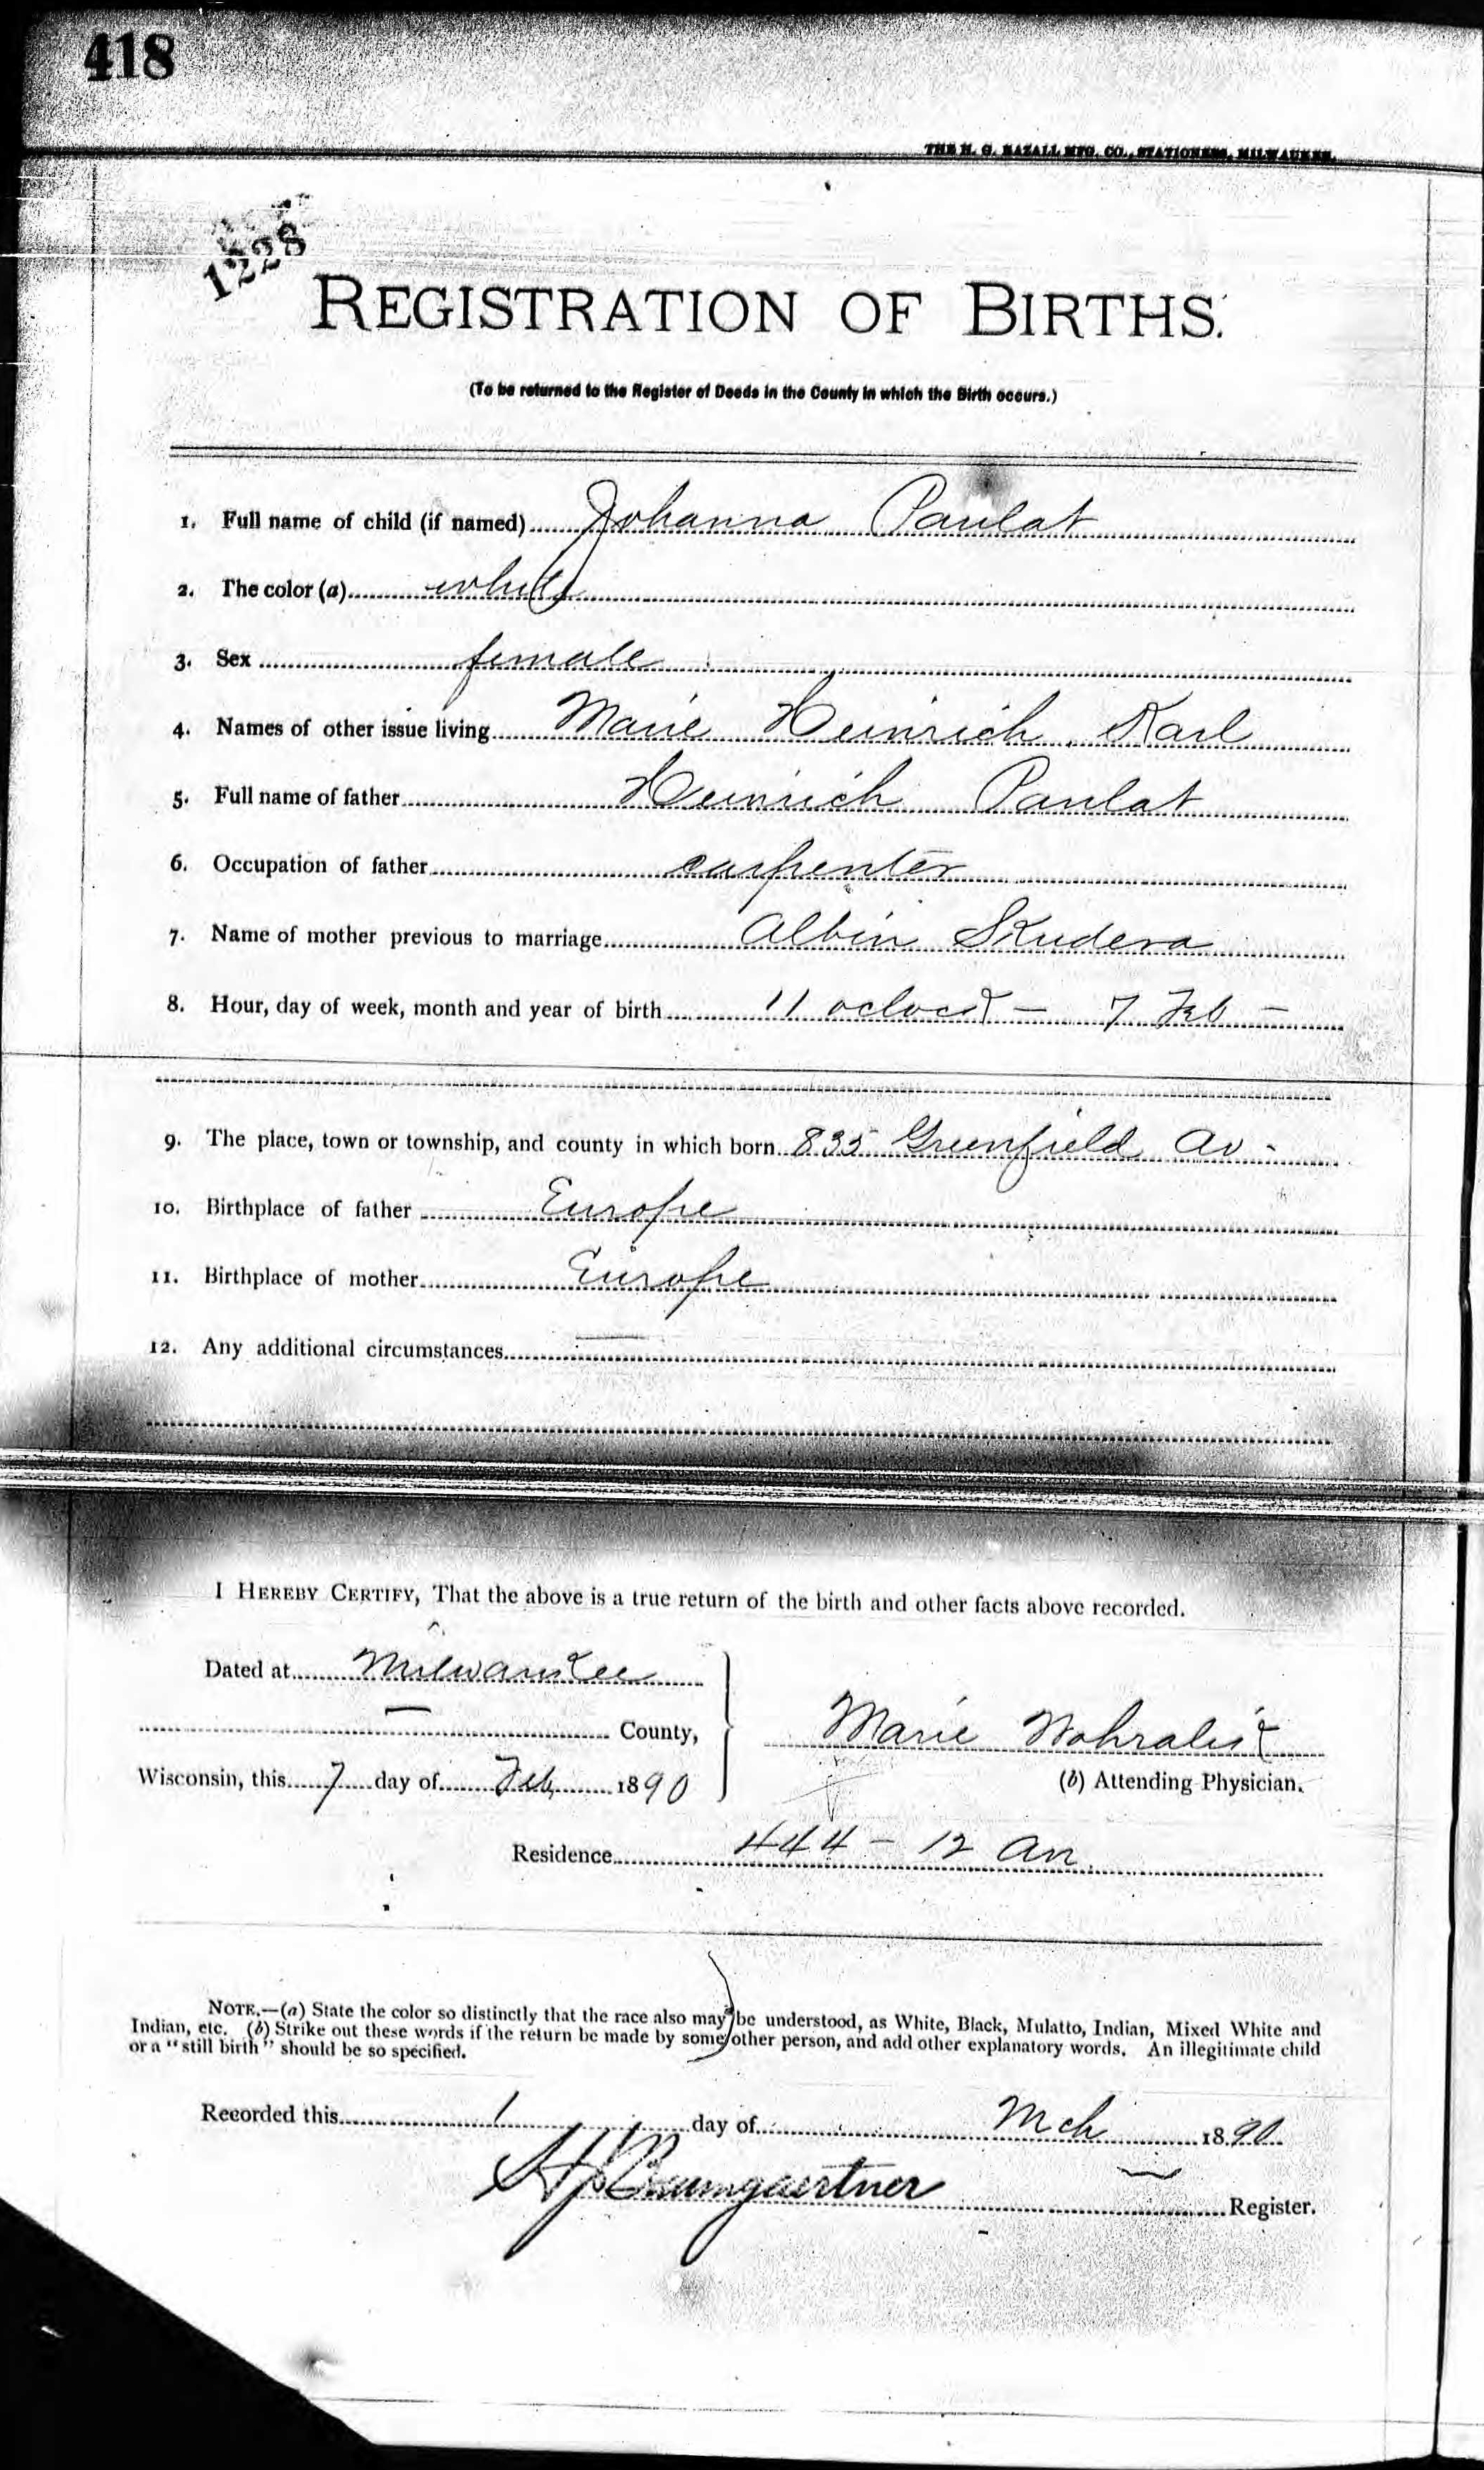 418
THE H. G. RAZALL MFG. CO., STATIONERS, MILWAUKEE.
1228
REGISTRATION OF BIRTHS.
(To be returned to the Register of Deeds in the County in which the Birth occurs.)
1. Full name of child (if named) Johanna Paulat
2. The color (a) white
3. Sex female
4. Names of other issue living Marie Heinrich, Karl
5. Full name of father Heinrich Paulat
6. Occupation of father carpenter
7. Name of mother previous to marriage Albin Skudera
8. Hour, day of week, month and year of birth 11 oclock - 7 Feb -
9. The place, town or township, and county in which born 835 Greenfield Av -
10. Birthplace of father Europe
11. Birthplace of mother Europe
12. Any additional circumstances —
I HEREBY CERTIFY, That the above is a true return of the birth and other facts above recorded.
Dated at Milwaukee
— County,
Marie
Wisconsin, this 7 day of Feb 1890
(b) Attending Physician.
Residence 444 - 12 Av.
NOTE.—(a) State the color so distinctly that the race also may be understood, as White, Black, Mulatto, Indian, Mixed White and
Indian, etc. (b) Strike out these words if the return be made by some other person, and add other explanatory words. An illegitimate child
or a "still birth" should be so specified.
Recorded this 1 day of Mch 1890
Baumgaertner Register.